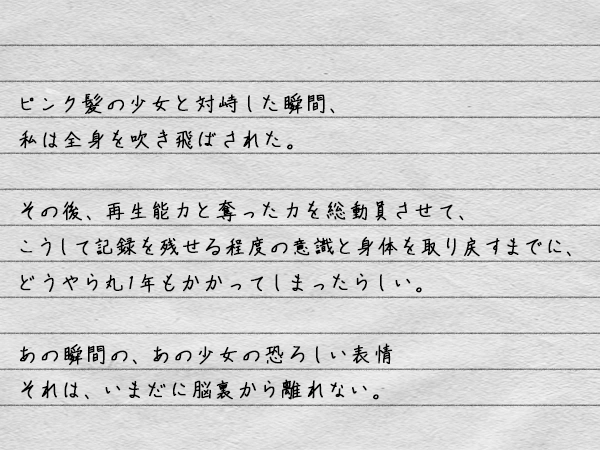 ピンク髪の少女と対峙した瞬間、
私は全身を吹き飛ばされた。
その後、再生能力と奪った力を総動員させて、
こうして記録を残せる程度の意識と身体を取り戻すまでに、
どうやら丸1年もかかってしまったらしい。
あの瞬間の、あの少女の恐ろしい表情
それは、いまだに脳裏から離れない。